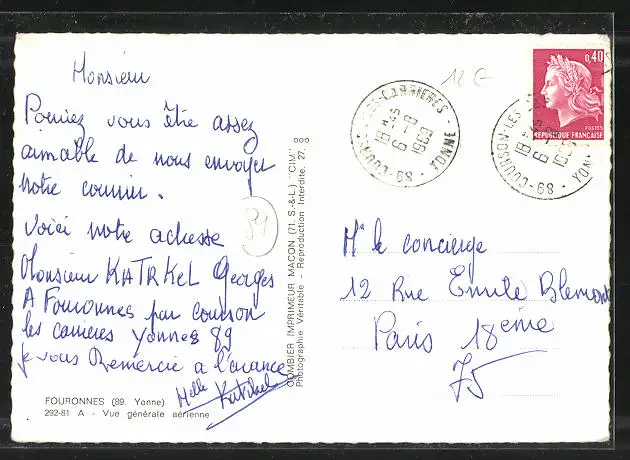 Monsieur
Pouriez vous être assez
aimable de nous envoyer
notre courrier.
Voici notre adresse
Monsieur KATRKEL Georges
A Fouronnes par courson
les carrieres Yonnes 89
je vous Remercie a l'avance
Melle Katrkel
FOURONNES (89. Yonne)
292-81 A - Vue générale aérienne
81
COMBIER IMPRIMEUR MACON (71. S.-&-L.) "CIM"
Photographie Véritable - Reproduction Interdite. 27.
12 €
COURSON-LES-CARRIERES - YONNE
18 H 45
6 - 9
1969
89
COURSON-LES
18 H 45
6 - 9
89
YON
0,40
POSTES
REPUBLIQUE FRANÇAISE
Mr le concierge
12 Rue Emile Blemont
Paris 18eme
75